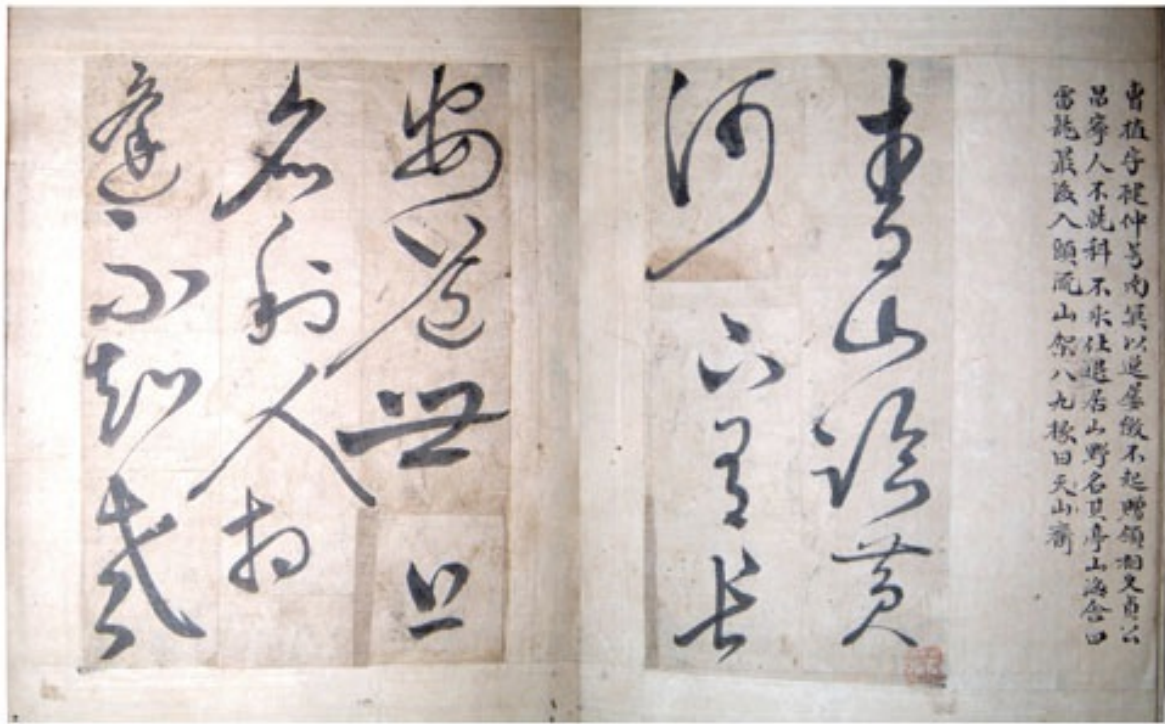 曺植字楗仲号南冥以逸屢徵不起贈領相文貞公
昌寧人不就科不求仕退居山野名其亭山海舍曰
雷龍最後入頭流山架八九椽曰天山齋
青山臨黃
河下有長
安道世上
名利人相
逢不知老